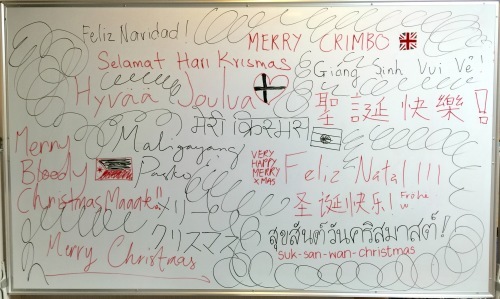 Feliz Navidad!
MERRY CRIMBO
Selamat Hari Krismas
Giáng Sinh Vui Vẻ!
Hyvää Joulua
聖誕快樂!
मेरी क्रिसमस
Merry
Bloody
Christmas Maaate!!
Maligayang
Pasko
VERY
HAPPY
MERRY
XMAS
Feliz Natal!!!
圣诞快乐!
Frohe
W
メリー
クリスマス
Merry Christmas
สุขสันต์วันคริสมาสต์!
suk-san-wan-christmas